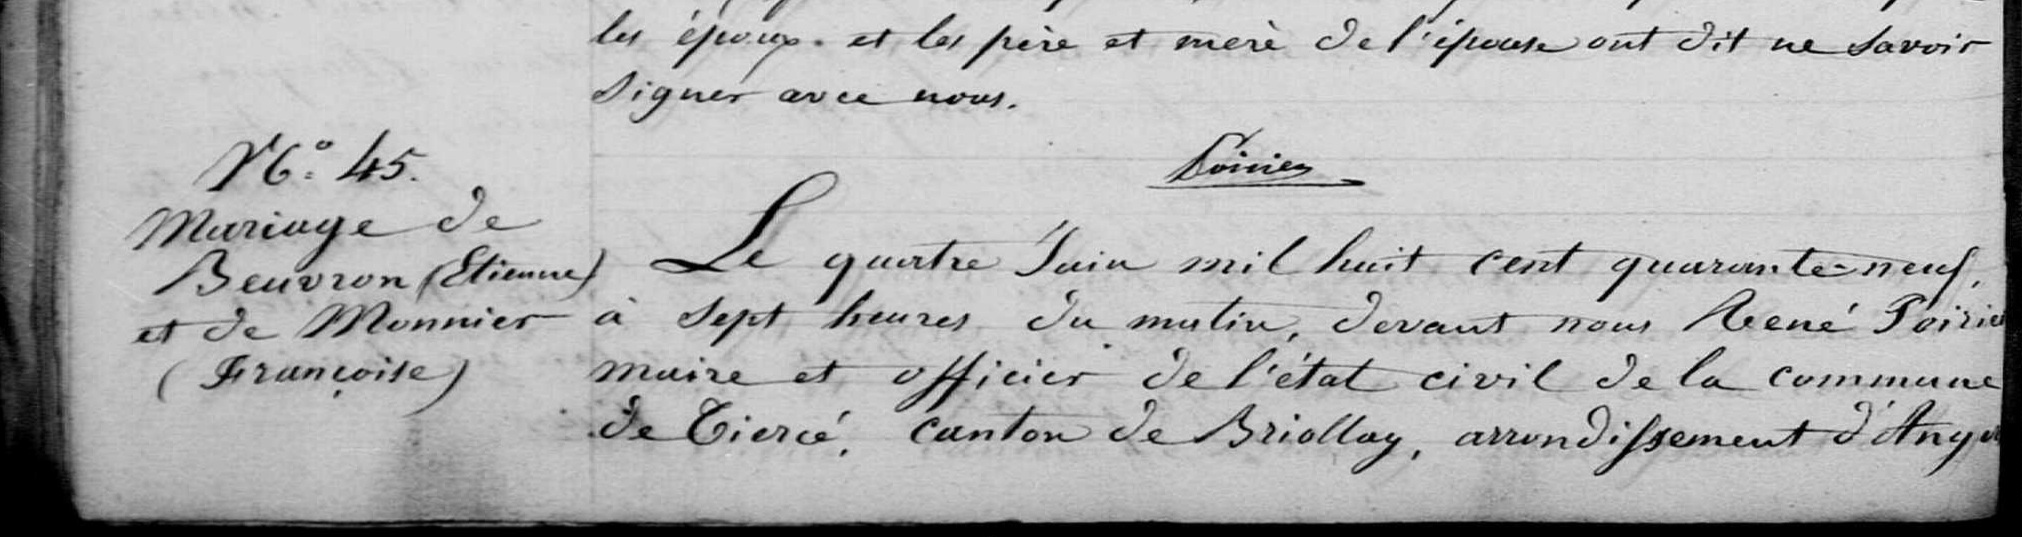 les époux. et les père et mère de l'épouse ont dit ne savoir
signer avec nous.
Poirier
N° 45.
Mariage de
Beuvron (Etienne)
et de Monnier
(Françoise)
Le quatre Juin mil huit cent quarante-neuf,
à sept heures du matin, devant nous René Poirier
maire et officier de l'état civil de la commune
de Tiercé, canton de Briollay, arrondissement d'Ang